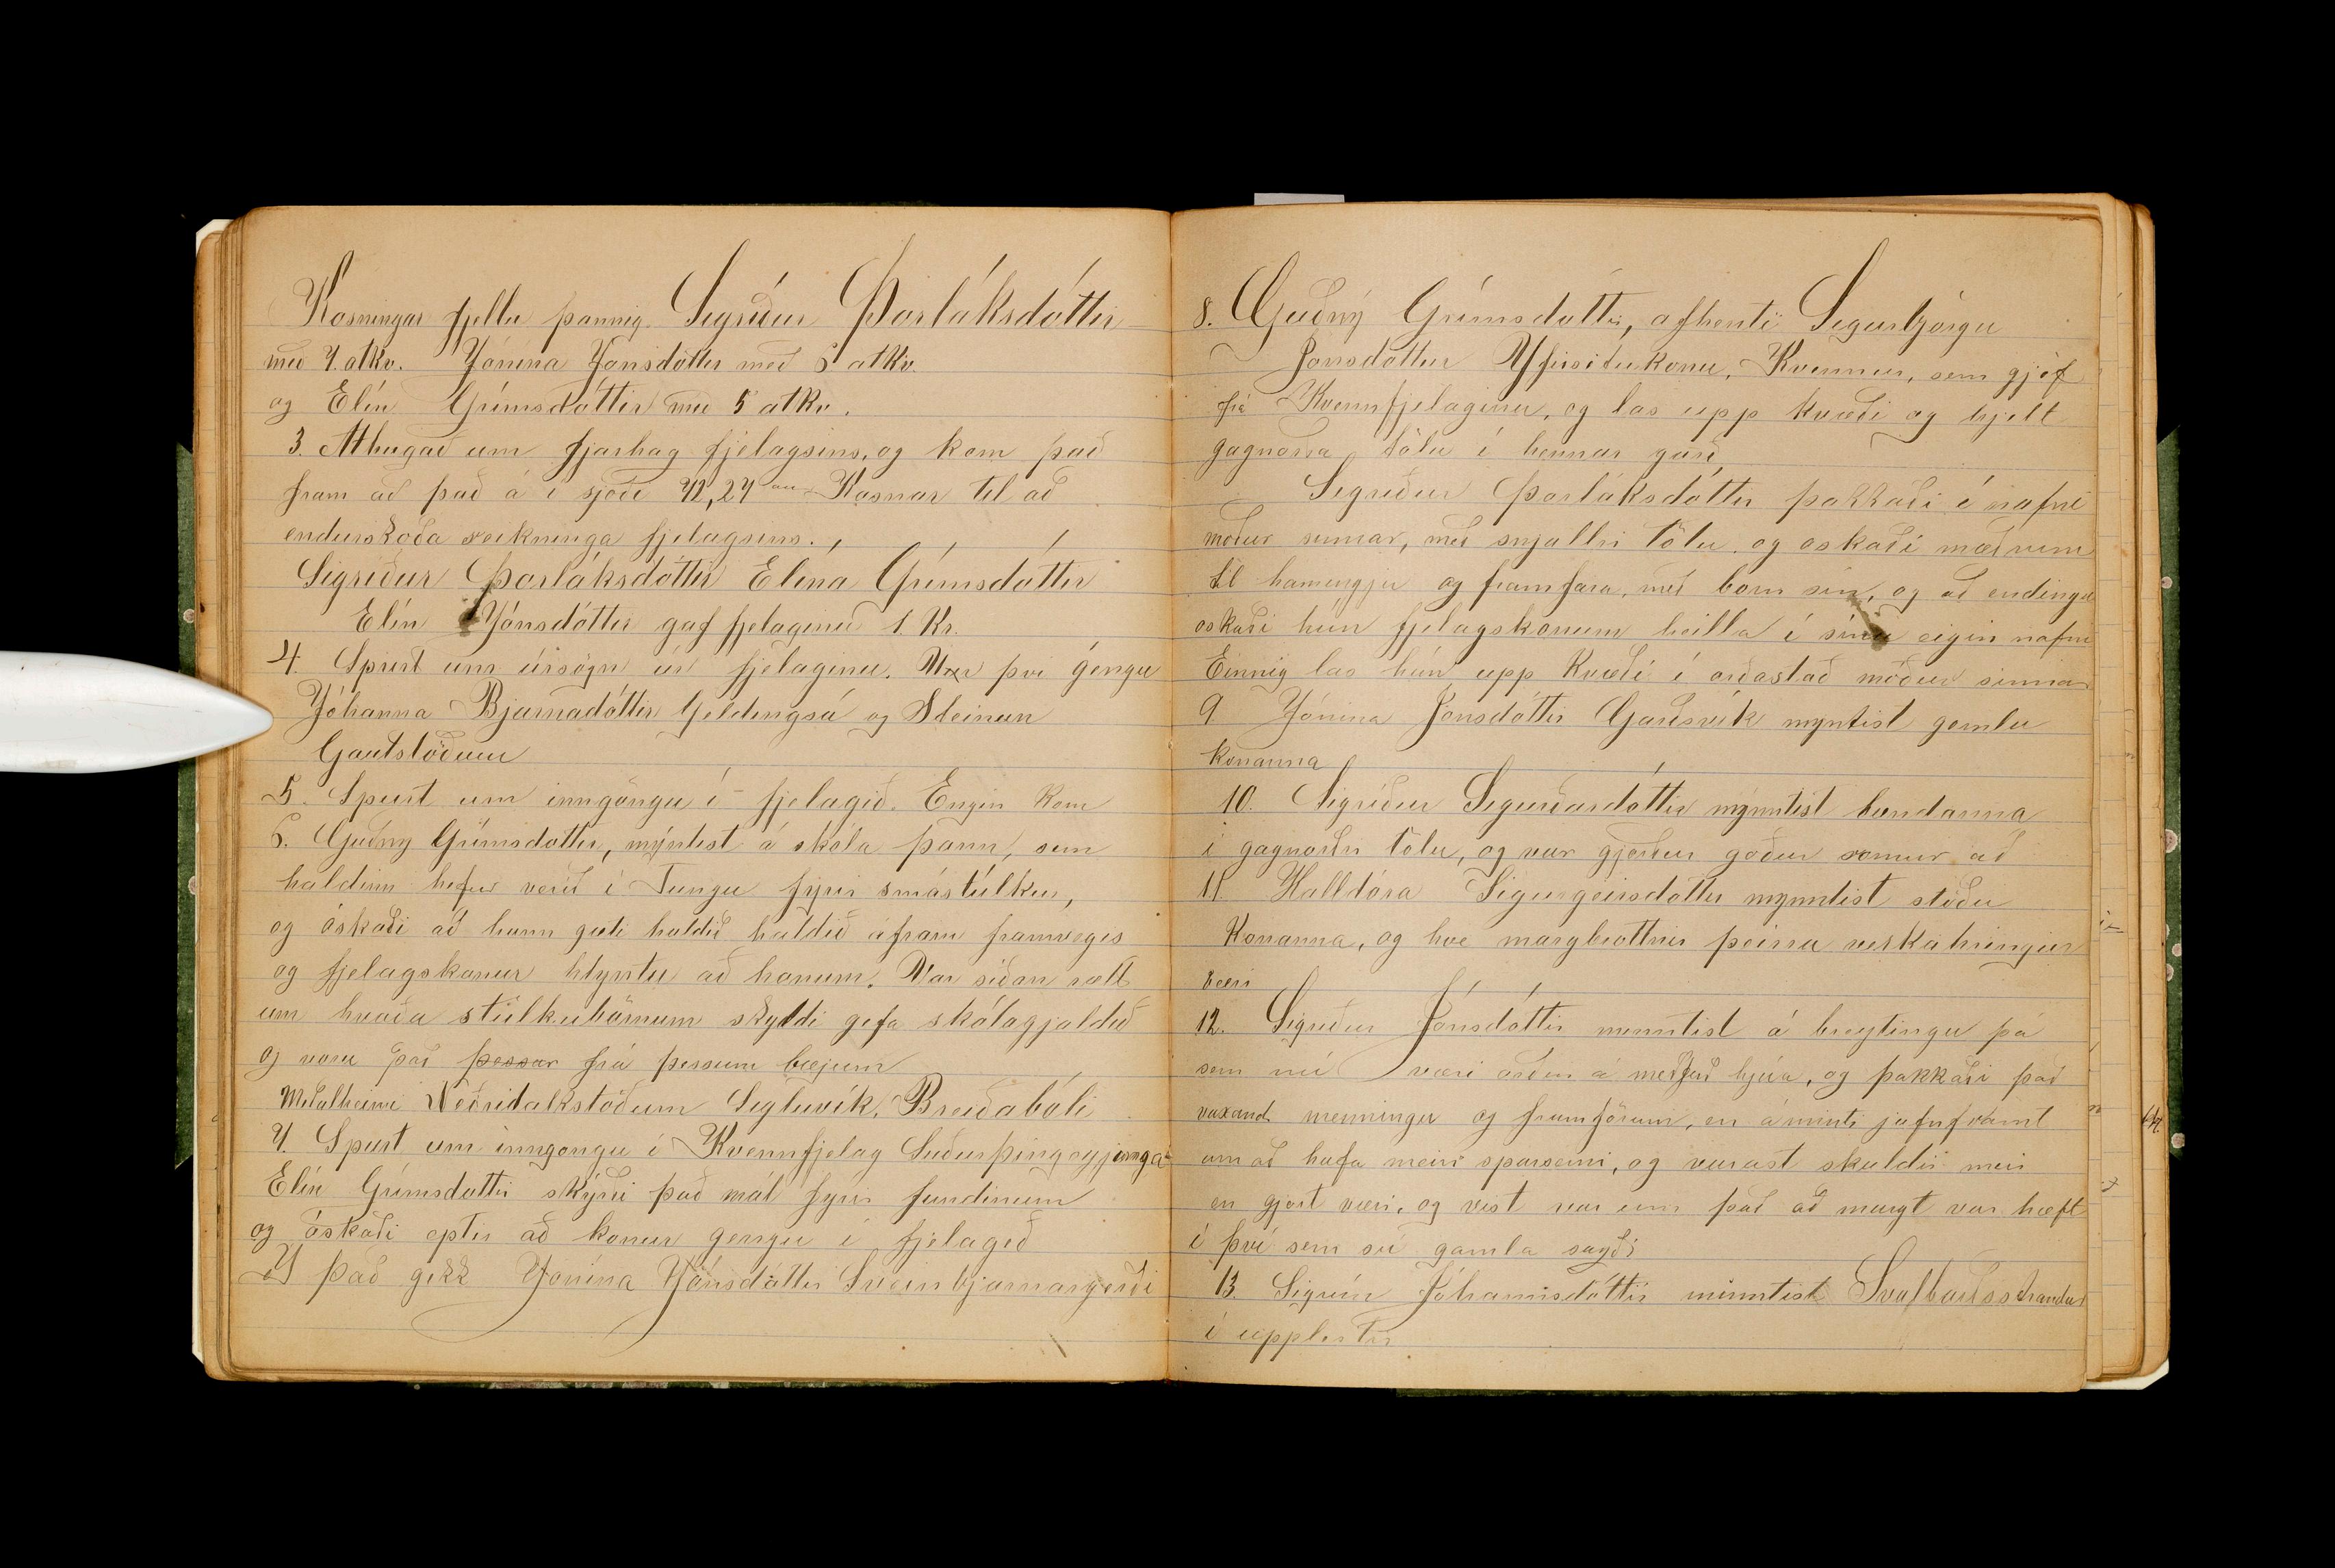 Kosningar fjellu þannig Sigríður Þorláksdóttir
með 7. atkv. Jónína Jónsdóttir með 6 atkv.
og Elín Grímsdóttir með 5 atkv.
3. Athugað um fjarhag fjelagsins, og kom það
fram að það á í sjóði 72,27 au Kosnar til að
endurskoða reikninga fjelagsins.
Sigríður Þorláksdóttir Elína Grímsdóttir
Elín Jónsdóttir gaf fjelaginu 1. Kr.
4. Spurt um úrsögn úr fjelaginu. Úr því gengu
Jóhanna Bjarnadóttir Geldingsá og Steinun
Gautstöðum
5. Spurt um inngöngu í fjelagið. Engin kom
6. Guðny Grímsdottir, mýntist á skóla þann, sem
haldinn hefur verið í Tungu fyrir smástúlkur,
og óskaði að hann gæti haldið haldið áfram framveges
og fjelagskonur hlyntu að honum. Var síðan rætt
um hvaða stúlkubörnum skyldi gefa skólagjaldið
og voru það þessar frá þessum bæjum
Meðalheimi Neðridalkstöðum Sigluvík, Breiðabóli
7. Spurt um inngongu í Kvennfjelag Suðurþingeyjinga
Elín Grímsdottir skýrði það mál fyrir fundinum
og óskaði eptir að konur gengu í fjelagið
Í það gekk Jonína Jónsdóttir Sveinbjarnargerði
8. Guðný Grímsdottir, afhenti Sigurbjörgu
Jonsdóttur Yfirsetukonu, Kvennur, sem gjöf
frá Kvennfjelaginu, og las upp kvæði og hjelt
gagnorða tölu í hennar garð
Sigríður Þorláksdóttir þakkaði í nafni
móður sinnar, með snjallri tölu, og oskaði mæðrum
til hamingju og framfara, með born sín, og að endingu
oskaði hún fjelagskonum heilla í sínu eigin nafni
Einnig las hún upp Kvæði í orðastað móður sinnar
9 Jónína Jonsdóttir Garðsvík myntist gomlu
konanna
10. Sigríður Sigurðardóttir mynntist bundanna
í gagnorðri tölu, og var gjörður góður romur að
11. Halldóra Sigurgeirsdóttir mynntist stöðu
Konanna, og hve margbrottnir þeirra verkahringur
væri
12. Sigríður Jónsdóttir minntist á breytingu þá
sem nú væri orðin á meðferð hjúa, og þakkaði það
vaxandi menningu og framförum, en áminti jafnframt
um að hafa meiri sparsemi, og varast skuldir meir
en gjört væri, og vist var um það að margt var hæft
í því sem sú gamla sagði
13. Sigrún Jóhannisdóttir minntist Svalbarðsstrandar
í upplestri